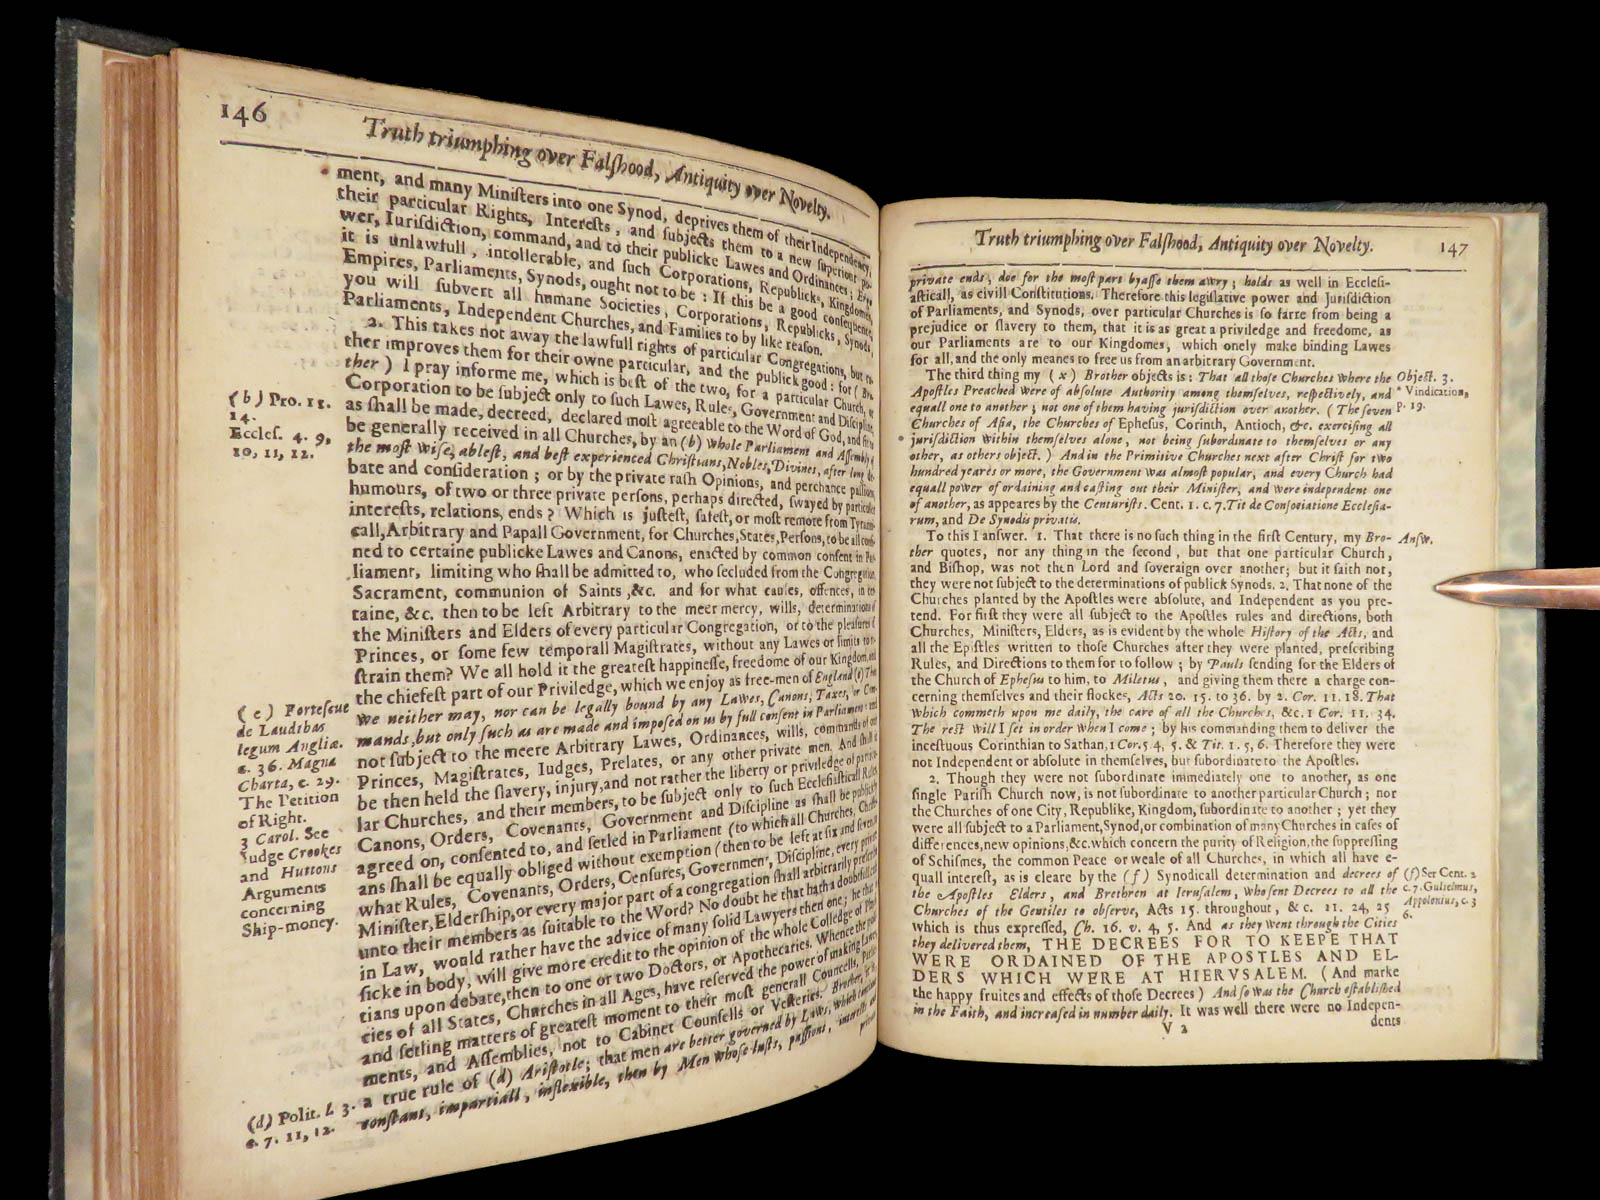 146
Truth triumphing over Falſhood, Antiquity over Novelty.
ment, and many Miniſters into one Synod, deprives them of their Independency,
their particular Rights, Intereſts, and ſubjects them to a new ſuperiour po-
wer, Iuriſdiction, command, and to their publicke Lawes and Ordinances; Ergo
it is unlawfull, intollerable, and ſuch Corporations, Republicks, Kingdomes,
Empires, Parliaments, Synods, ought not to be: If this be a good conſequence,
you will ſubvert all humane Societies, Corporations, Republicks, Synods,
Parliaments, Independent Churches, and Families to by like reaſon.
2. This takes not away the lawfull rights of particular Congregations, but ra-
ther improves them for their owne particular, and the publick good: for (Bro-
ther) I pray informe me, which is beſt of the two, for a particular Church, or
Corporation to be ſubject only to ſuch Lawes, Rules, Government and Diſcipline,
as ſhall be made, decreed, declared moſt agreeable to the Word of God, and fit to
be generally received in all Churches, by an (b) whole Parliament and Aſſembly of
the moſt Wiſe, ableſt, and beſt experienced Chriſtians, Nobles, Divines, after long de-
bate and conſideration; or by the private raſh Opinions, and perchance paſſions,
humours, of two or three private perſons, perhaps directed, ſwayed by particular
intereſts, relations, ends? Which is juſteſt, ſafeſt, or moſt remote from Tyranni-
call, Arbitrary and Papall Government, for Churches, States, Perſons, to be all confi-
ned to certaine publicke Lawes and Canons, enacted by common conſent in Par-
liament, limiting who ſhall be admitted to, who ſecluded from the Congregation,
Sacrament, communion of Saints, &c. and for what cauſes, offences, in cer-
taine, &c. then to be left Arbitrary to the meer mercy, wills, determinations of
the Miniſters and Elders of every particular Congregation, or to the pleaſures of
Princes, or ſome few temporall Magiſtrates, without any Lawes or limits to re-
ſtrain them? We all hold it the greateſt happineſſe, freedome of our Kingdom, and
the chiefeſt part of our Priviledge, which we enjoy as free-men of England (c) That
we neither may, nor can be legally bound by any Lawes, Canons, Taxes, or Com-
mands, but only ſuch as are made and impoſed on us by full conſent in Parliament: and
not ſubject to the meere Arbitrary Lawes, Ordinances, wills, commands of our
Princes, Magiſtrates, Iudges, Prelates, or any other private men. And ſhall it
be then held the ſlavery, injury, and not rather the liberty or priviledge of particu-
lar Churches, and their members, to be ſubject only to ſuch Eccleſiaſticall Rules,
Canons, Orders, Covenants, Government and Diſcipline as ſhall be publickly
agreed on, conſented to, and ſetled in Parliament (to which all Churches, Chriſti-
ans ſhall be equally obliged without exemption (then to be left at ſix and ſeven,
what Rules, Covenants, Orders, Cenſures, Government, Diſcipline, every private
Miniſter, Elderſhip, or every major part of a congregation ſhall arbitrarily preſcribe
unto their members as ſuitable to the Word? No doubt he that hath a doubtfull
in Law, would rather have the advice of many ſolid Lawyers then one; he that
ſicke in body, will give more credit to the opinion of the whole Colledge of
tians upon debate, then to one or two Doctors, or Apothecaries. Whence the
cies of all States, Churches in all Ages, have reſerved the power of making Lawes,
and ſetling matters of greateſt moment to their moſt generall Councells,
ments, and Aſſemblies, not to Cabinet Counſells or Veſteries. Brother,
a true rule of (d) Ariſtotle; that men are better governed by Laws, which
conſtant, impartiall, inflexible, then by Men whoſe luſts, paſſions, intereſts and
private
(b) Pro. 15.
14.
Eccleſ. 4. 9,
10, 11, 12.
(c) Forteſcue
de Laudibus
legum Angliæ.
c. 36. Magna
Charta, c. 29.
The Petition
of Right.
3 Carol. See
Judge Crookes
and Huttons
Arguments
concerning
Ship-money.
(d) Polit. l. 3.
c. 7. 11, 12.
Truth triumphing over Falſhood, Antiquity over Novelty.
147
private ends, doe for the moſt part byaſſe them awry; holds as well in Eccleſi-
aſticall, as civill Conſtitutions. Therefore this legiſlative power and Juriſdiction
of Parliaments, and Synods, over particular Churches is ſo farre from being a
prejudice or ſlavery to them, that it is as great a priviledge and freedome, as
our Parliaments are to our Kingdomes, which onely make binding Lawes
for all, and the only meanes to free us from an arbitrary Government.
The third thing my (x) Brother objects is: That all thoſe Churches where the
Apoſtles Preached were of abſolute Authority among themſelves, reſpectively, and
equall one to another; not one of them having juriſdiction over another. (The ſeven
Churches of Aſia, the Churches of Epheſus, Corinth, Antioch, &c. exerciſing all
juriſdiction within themſelves alone, not being ſubordinate to themſelves or any
other, as others object.) And in the Primitive Churches next after Chriſt for two
hundred yeares or more, the Government was almoſt popular, and every Church had
equall power of ordaining and caſting out their Miniſter, and were independent one
of another, as appeares by the Centuriſts. Cent. 1. c. 7. Tit de Conſociatione Eccleſia-
rum, and De Synodis privatis.
To this I anſwer. 1. That there is no ſuch thing in the firſt Century, my Bro-
ther quotes, nor any thing in the ſecond, but that one particular Church,
and Biſhop, was not then Lord and ſoveraign over another; but it ſaith not,
they were not ſubject to the determinations of publick Synods. 2. That none of the
Churches planted by the Apoſtles were abſolute, and Independent as you pre-
tend. For firſt they were all ſubject to the Apoſtles rules and directions, both
Churches, Miniſters, Elders, as is evident by the whole Hiſtory of the Acts, and
all the Epiſtles written to thoſe Churches after they were planted, preſcribing
Rules, and Directions to them for to follow; by Pauls ſending for the Elders of
the Church of Epheſus to him, to Miletus, and giving them there a charge con-
cerning themſelves and their flockes, Acts 20. 15. to 36. by 2. Cor. 11. 18. That
which commeth upon me daily, the care of all the Churches, &c. 1 Cor. 11. 34.
The reſt will I ſet in order when I come; by his commanding them to deliver the
inceſtuous Corinthian to Sathan, 1 Cor. 5 4, 5. & Tit. 1. 5, 6. Therefore they were
not Independent or abſolute in themſelves, but ſubordinate to the Apoſtles.
2. Though they were not ſubordinate immediately one to another, as one
ſingle Pariſh Church now, is not ſubordinate to another particular Church; nor
the Churches of one City, Republike, Kingdom, ſubordinate to another; yet they
were all ſubject to a Parliament, Synod, or combination of many Churches in caſes of
differences, new opinions, &c. which concern the purity of Religion, the ſuppreſſing
of Schiſmes, the common Peace or weale of all Churches, in which all have e-
quall intereſt, as is cleare by the (f) Synodicall determination and decrees of
the Apoſtles Elders, and Brethren at Ieruſalem, who ſent Decrees to all the
Churches of the Gentiles to obſerve, Acts 15. throughout, & c. 21. 24, 25
which is thus expreſſed, Ch. 16. v. 4, 5. And as they went through the Cities
they delivered them, THE DECREES FOR TO KEEPE THAT
WERE ORDAINED OF THE APOSTLES AND EL-
DERS WHICH WERE AT HIERVSALEM. (And marke
the happy fruites and effects of thoſe Decrees) And ſo was the Church eſtabliſhed
in the Faith, and increaſed in number daily. It was well there were no Indepen-
V 2
dents
Object. 3.
* Vindication,
p. 19.
Anſw.
(f) See Cent. 2
c. 7. Gulielmus,
Appolonius, c. 3
6.